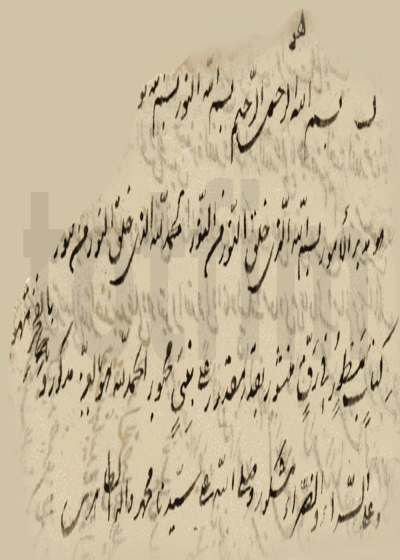 هو
بسم الله الرحمن الرحیم بسم الله النور بسم
هو مدبر الأمور بسم الله الذی خلق النور من النور الحمد لله الذی خلق النور من نور
کتاب مسطور فی رق منشور بقدر مقدور علی نبی محبور الحمد لله هو بالعز مذکور و
بالفخر مشهور
و علی السراء و الضراء مشکور و صلی الله علی سیدنا محمد و اله الطاهرین